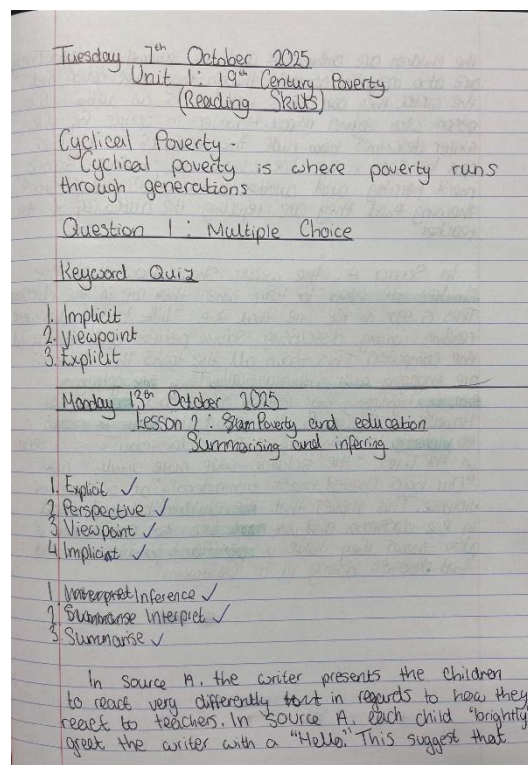 Tuesday 7th October 2025
Unit 1: 19th Century Poverty
(Reading Skills)
Cyclical Poverty -
Cyclical poverty is where poverty runs
through generations
Question 1: Multiple Choice
Keyword Quiz
1. Implicit
2. Viewpoint
3. Explicit
Monday 13th October 2025
Lesson 2: Poverty and education
Summarising and inferring
1. Explicit ✓
2. Perspective ✓
3. Viewpoint ✓
4. Implicit ✓
1. Inference ✓
2. Interpret ✓
3. Summarise ✓
In source A, the writer presents the children
to react very differently in regards to how they
react to teachers. In source A, each child "brightly
greet the writer with a "Hello." This suggest that